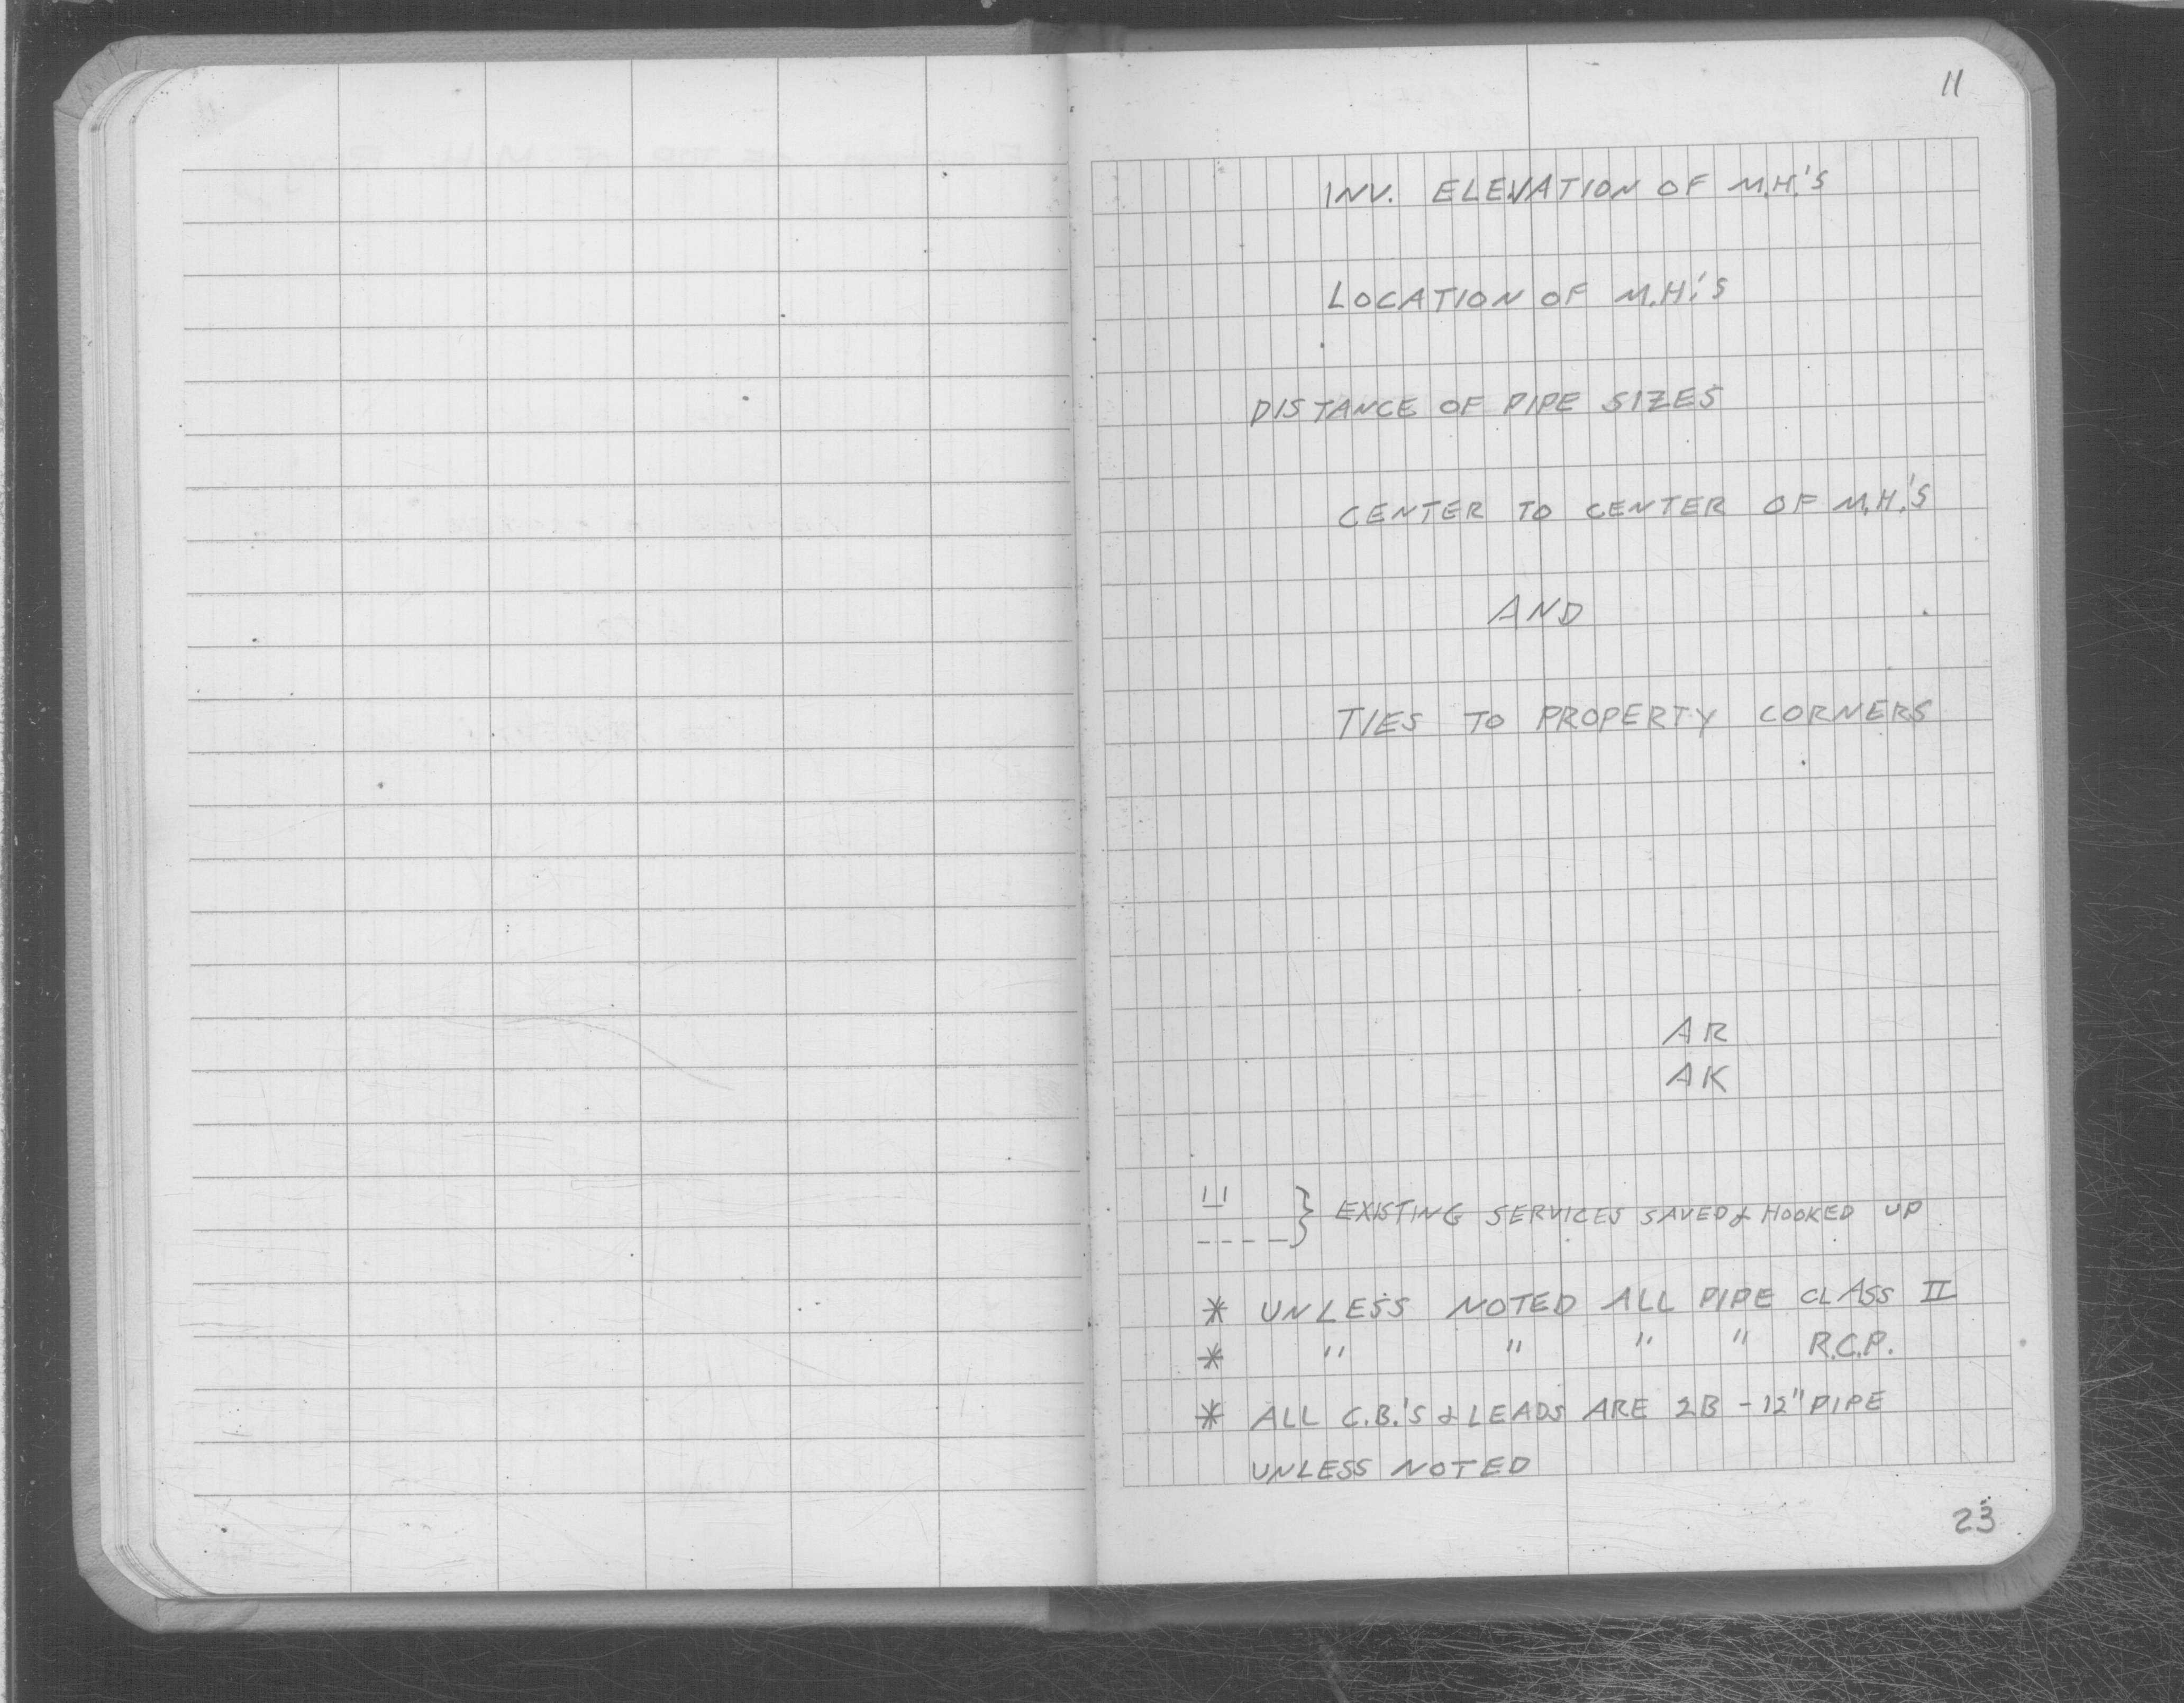 11
INV. ELEVATION OF M.H.'S
LOCATION OF M.H.'S
DISTANCE OF PIPE SIZES
CENTER TO CENTER OF M.H.'S
AND
TIES TO PROPERTY CORNERS
AR
AK
} EXISTING SERVICES SAVED & HOOKED UP
* UNLESS NOTED ALL PIPE CLASS II
* " " " " R.C.P.
* ALL C.B.'S & LEADS ARE 2B - 12" PIPE
UNLESS NOTED
23